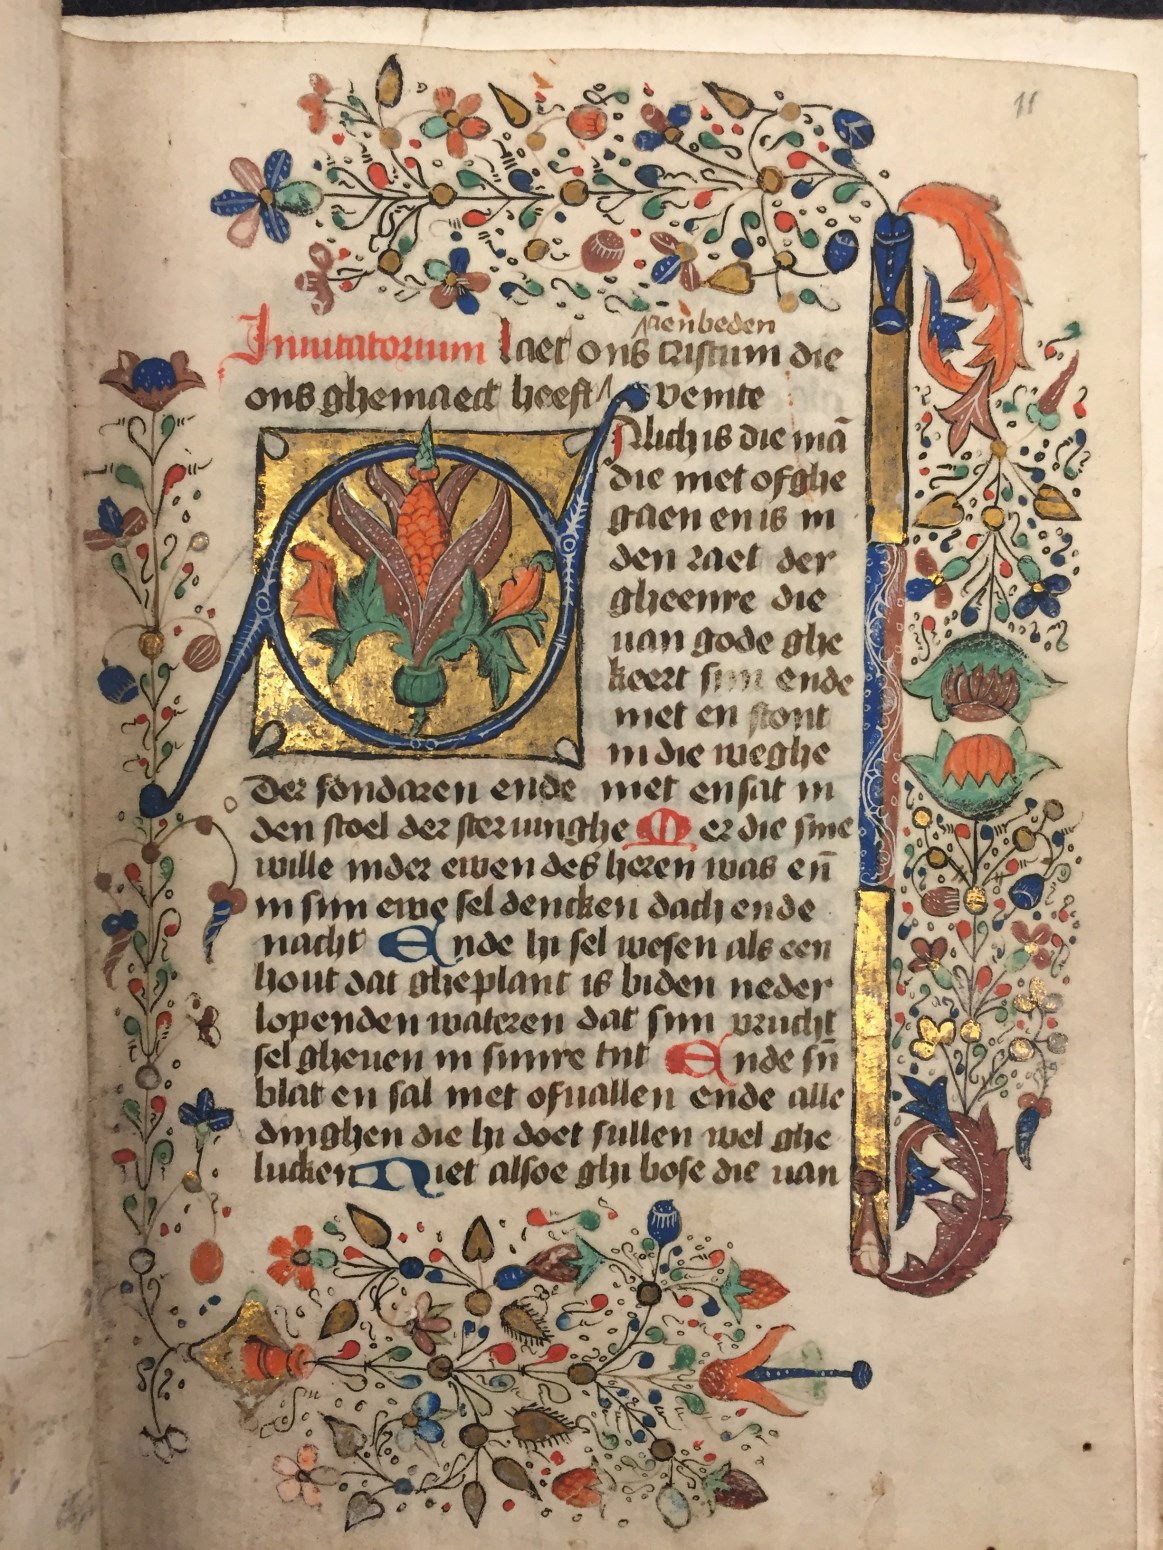 11
aenbeden
Inuitatorium Laet ons cristum die
ons ghemaect heeft venite
Alich is die mā
die niet ofghe
gaen en is in
den raet der
gheenre die
uan gode ghe
keert sijn ende
niet en stont
in die weghe
der sondaren ende niet en sat in
den stoel der steruinghe Mer die sine
wille inder ewen des heren was eñ
in sijn ewe sel dencken dach ende
nacht Ende hi sel wesen als een
hout dat gheplant is biden neder
lopenden wateren dat sijn vrucht
sel gheuen in sinre tijt Ende sijn
blat en sal niet ofuallen ende alle
dinghen die hi doet sullen wel ghe
lucken Niet alsoe ghi bose die uan